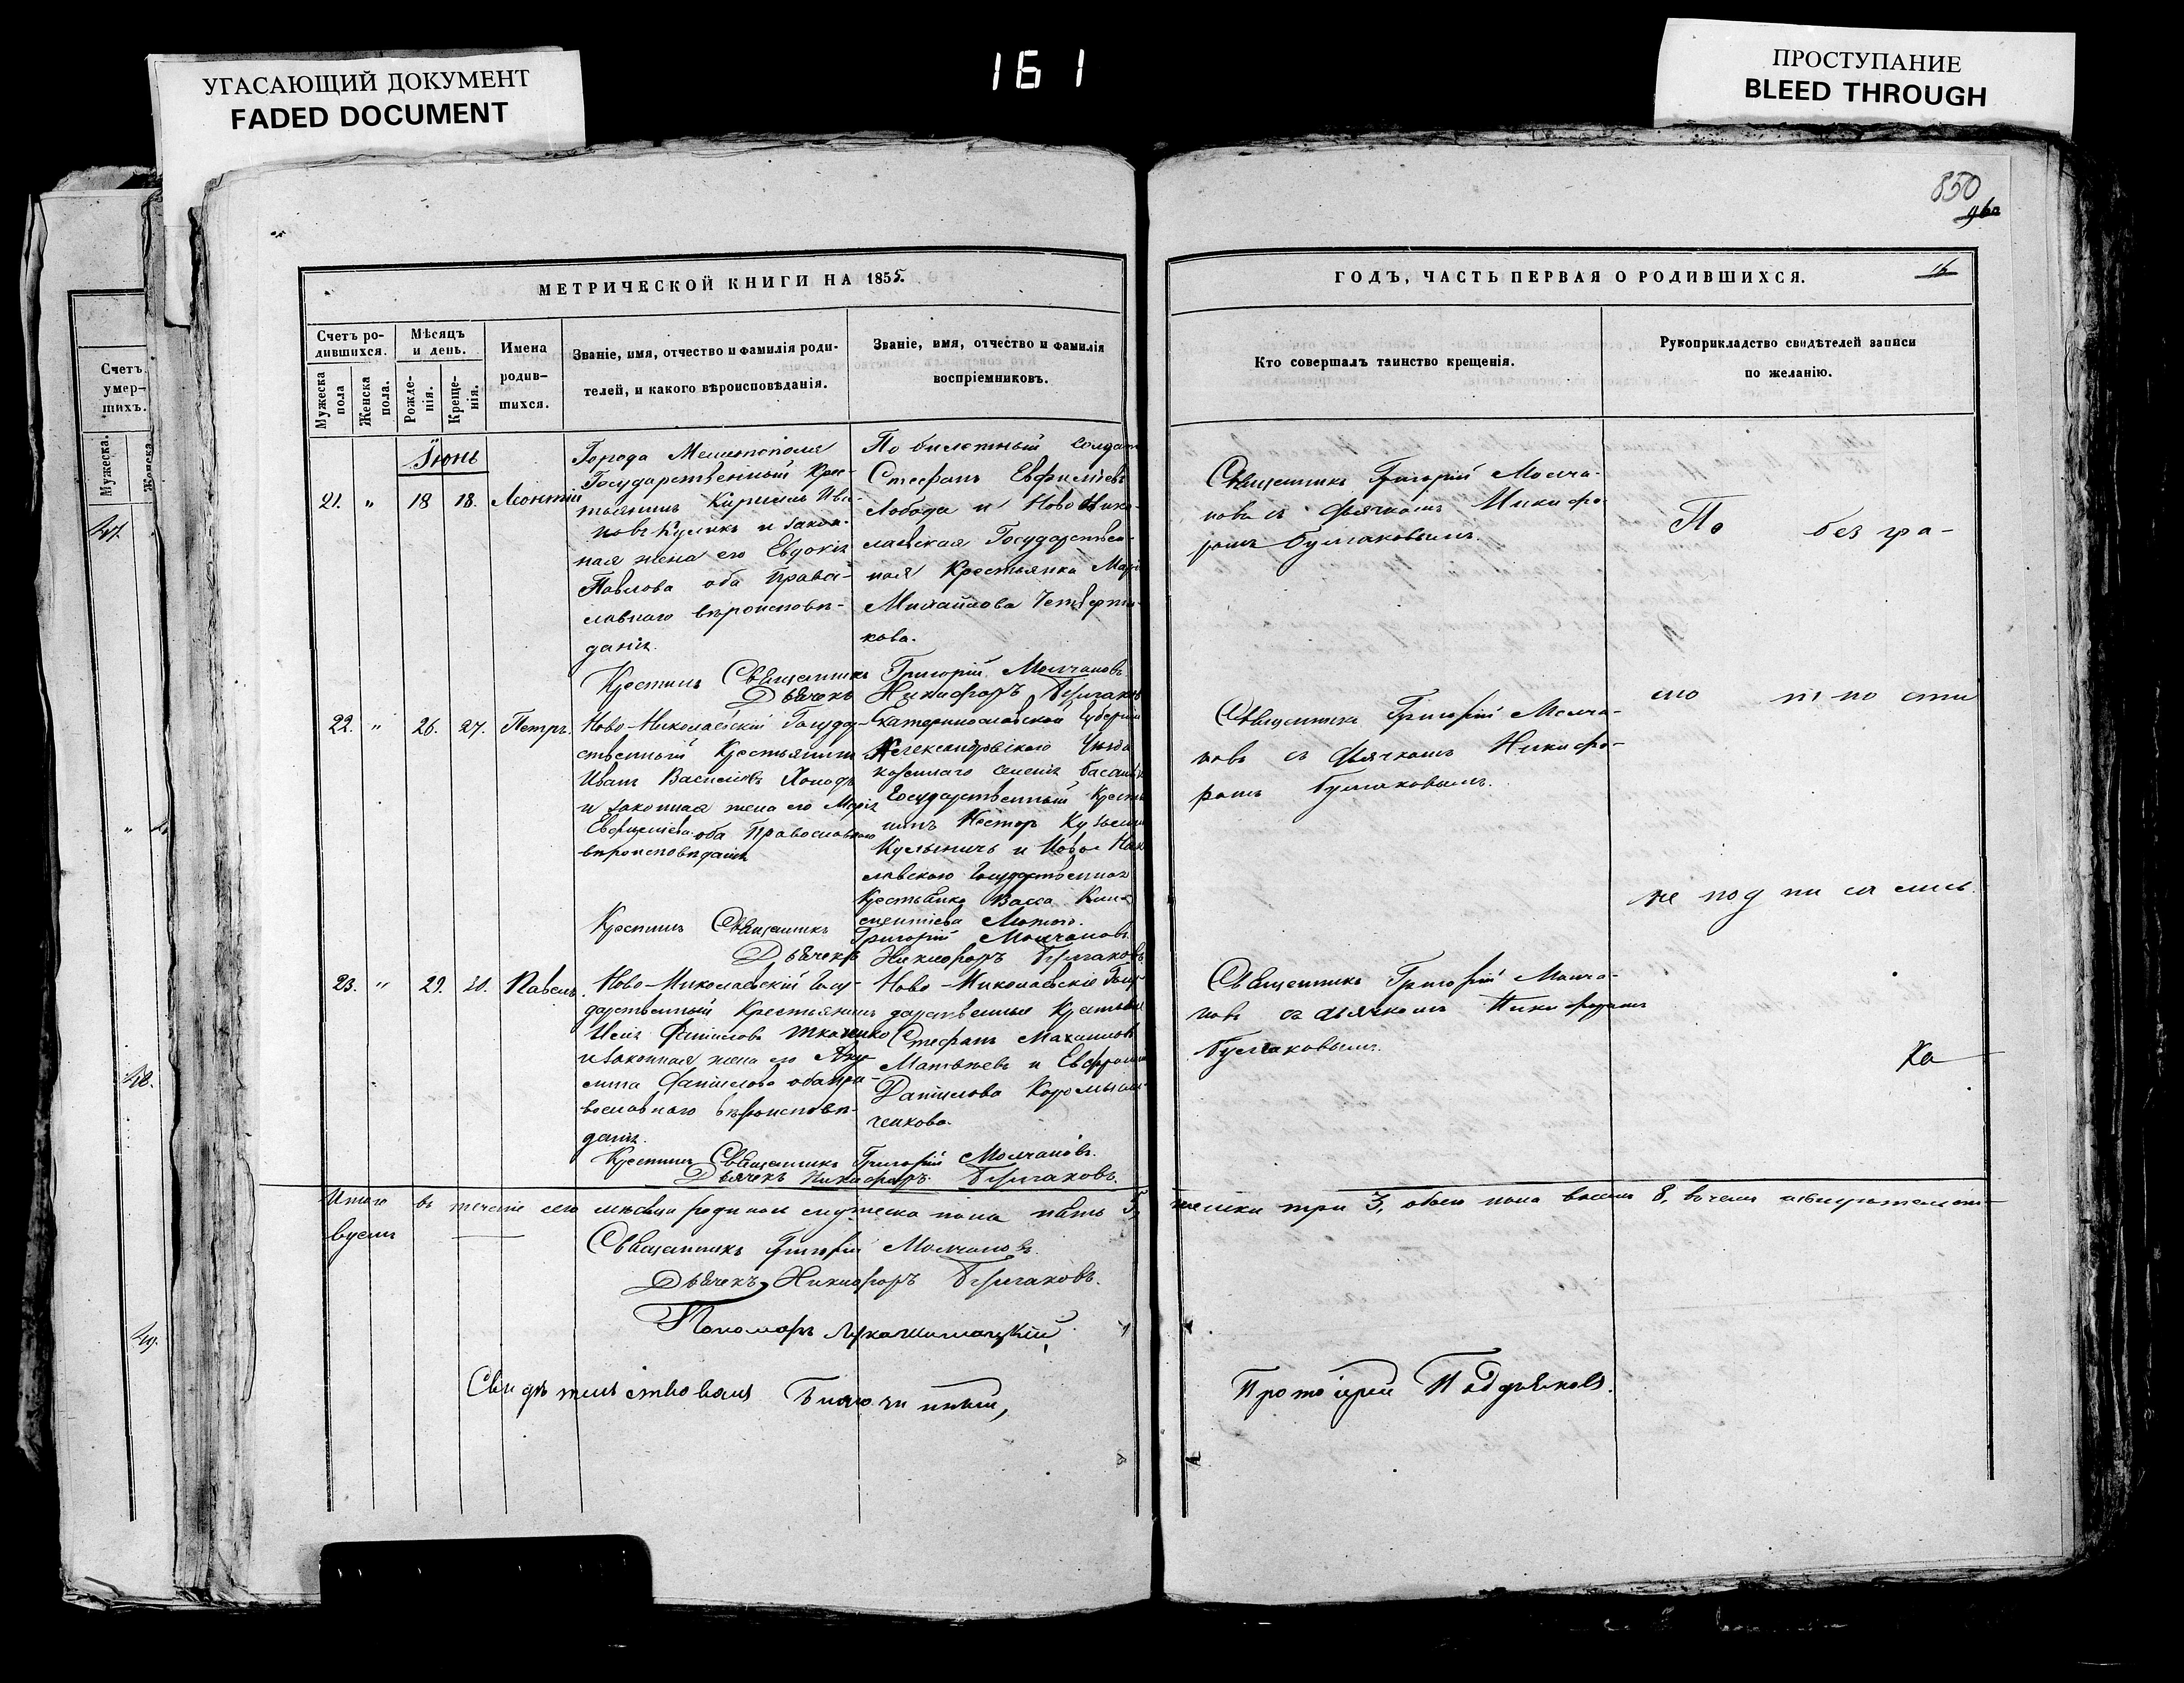 161
УГАСАЮЩИЙ ДОКУМЕНТ
FADED DOCUMENT
ПРОСТУПАНИЕ
BLEED THROUGH
850
16
Счетъ
умер-
шихъ.
Мужеска.
Женска
47.
48.
49.
МЕТРИЧЕСКОЙ КНИГИ НА 1855.
ГОДЪ, ЧАСТЬ ПЕРВАЯ О РОДИВШИХСЯ.
Счетъ ро-
дившихся.
Мужеска пола
Женска пола.
Мѣсяцъ
и день.
Рожде-
нія.
Креще-
нія.
Имена
родив-
шихся.
Званіе, имя, отчество и фамилія роди-
телей, и какого вѣроисповѣданія.
Званіе, имя, отчество и фамилія
воспріемниковъ.
Кто совершалъ таинство крещенія.
Рукоприкладство свидѣтелей записи
по желанію.
Іюнь
21. " 18 18. Леонтій
Города Мелитополя
Государственный Крес-
тьянинъ Кириллъ Ива-
новъ Куликъ и закон-
ная жена его Евдокія
Павлова оба Право-
славнаго вѣроисповѣ-
данія.
По билетный Солдатъ
Стефанъ Евфиміевъ
Лобода и Ново Нико-
лаевская Государствен-
ная Крестьянка Марія
Михайлова Четверти-
кова.
Крестилъ Священникъ Григорій Молчановъ
Дьячекъ Никифоръ Булгаковъ
Священникъ Григорій Молча-
новъ съ Дьячкомъ Никифо-
ромъ Булгаковымъ.
По безгра-
22. " 26. 27. Петръ.
Ново-Николаевскій Государ-
ственный Крестьянинъ
Иванъ Васильевъ
и законная жена его Марія
Евфиміева оба Православнаго
вѣроисповѣданія
Екатеринославской Губерніи
Александровскаго Уѣзда
казеннаго селенія
Государственный Крестья-
нинъ Несторъ Кузьминъ
и Ново Нико-
лаевскаго Государственная
Крестьянка Васса
Крестилъ Священникъ Григорій Молчановъ
Дьячекъ Никифоръ Булгаковъ.
Священникъ Григорій Молча-
новъ съ Дьячкомъ Никифо-
ромъ Булгаковымъ.
мо т но сти
не под пи са лись.
23. " 29. 30. Павелъ.
Ново-Николаевскій Госу-
дарственный Крестьянинъ
Ткаченко
и законная жена его Аку-
лина Данилова оба пра-
вославнаго вѣроисповѣ-
данія.
Ново-Николаевскіе Госу-
дарственные Крестьяне
Стефанъ
Матвѣевъ и Евфросинія
Данилова
Крестилъ Священникъ Григорій Молчановъ.
Дьячекъ Никифоръ Булгаковъ.
Священникъ Григорій Молча-
новъ съ дьячкомъ Никифоромъ
Булгаковымъ.
Итого въ теченіе сего мѣсяца родилось мужеска пола пять 5, женска три 3, обоего пола восемь 8, въ чемъ и свидѣтельст-
вуемъ
Священникъ Григорій Молчановъ.
Дьячекъ Никифоръ Булгаковъ.
Пономарь Лука
Свидѣтельствовалъ Благочинный,
Протоіерей Поддьяковъ.